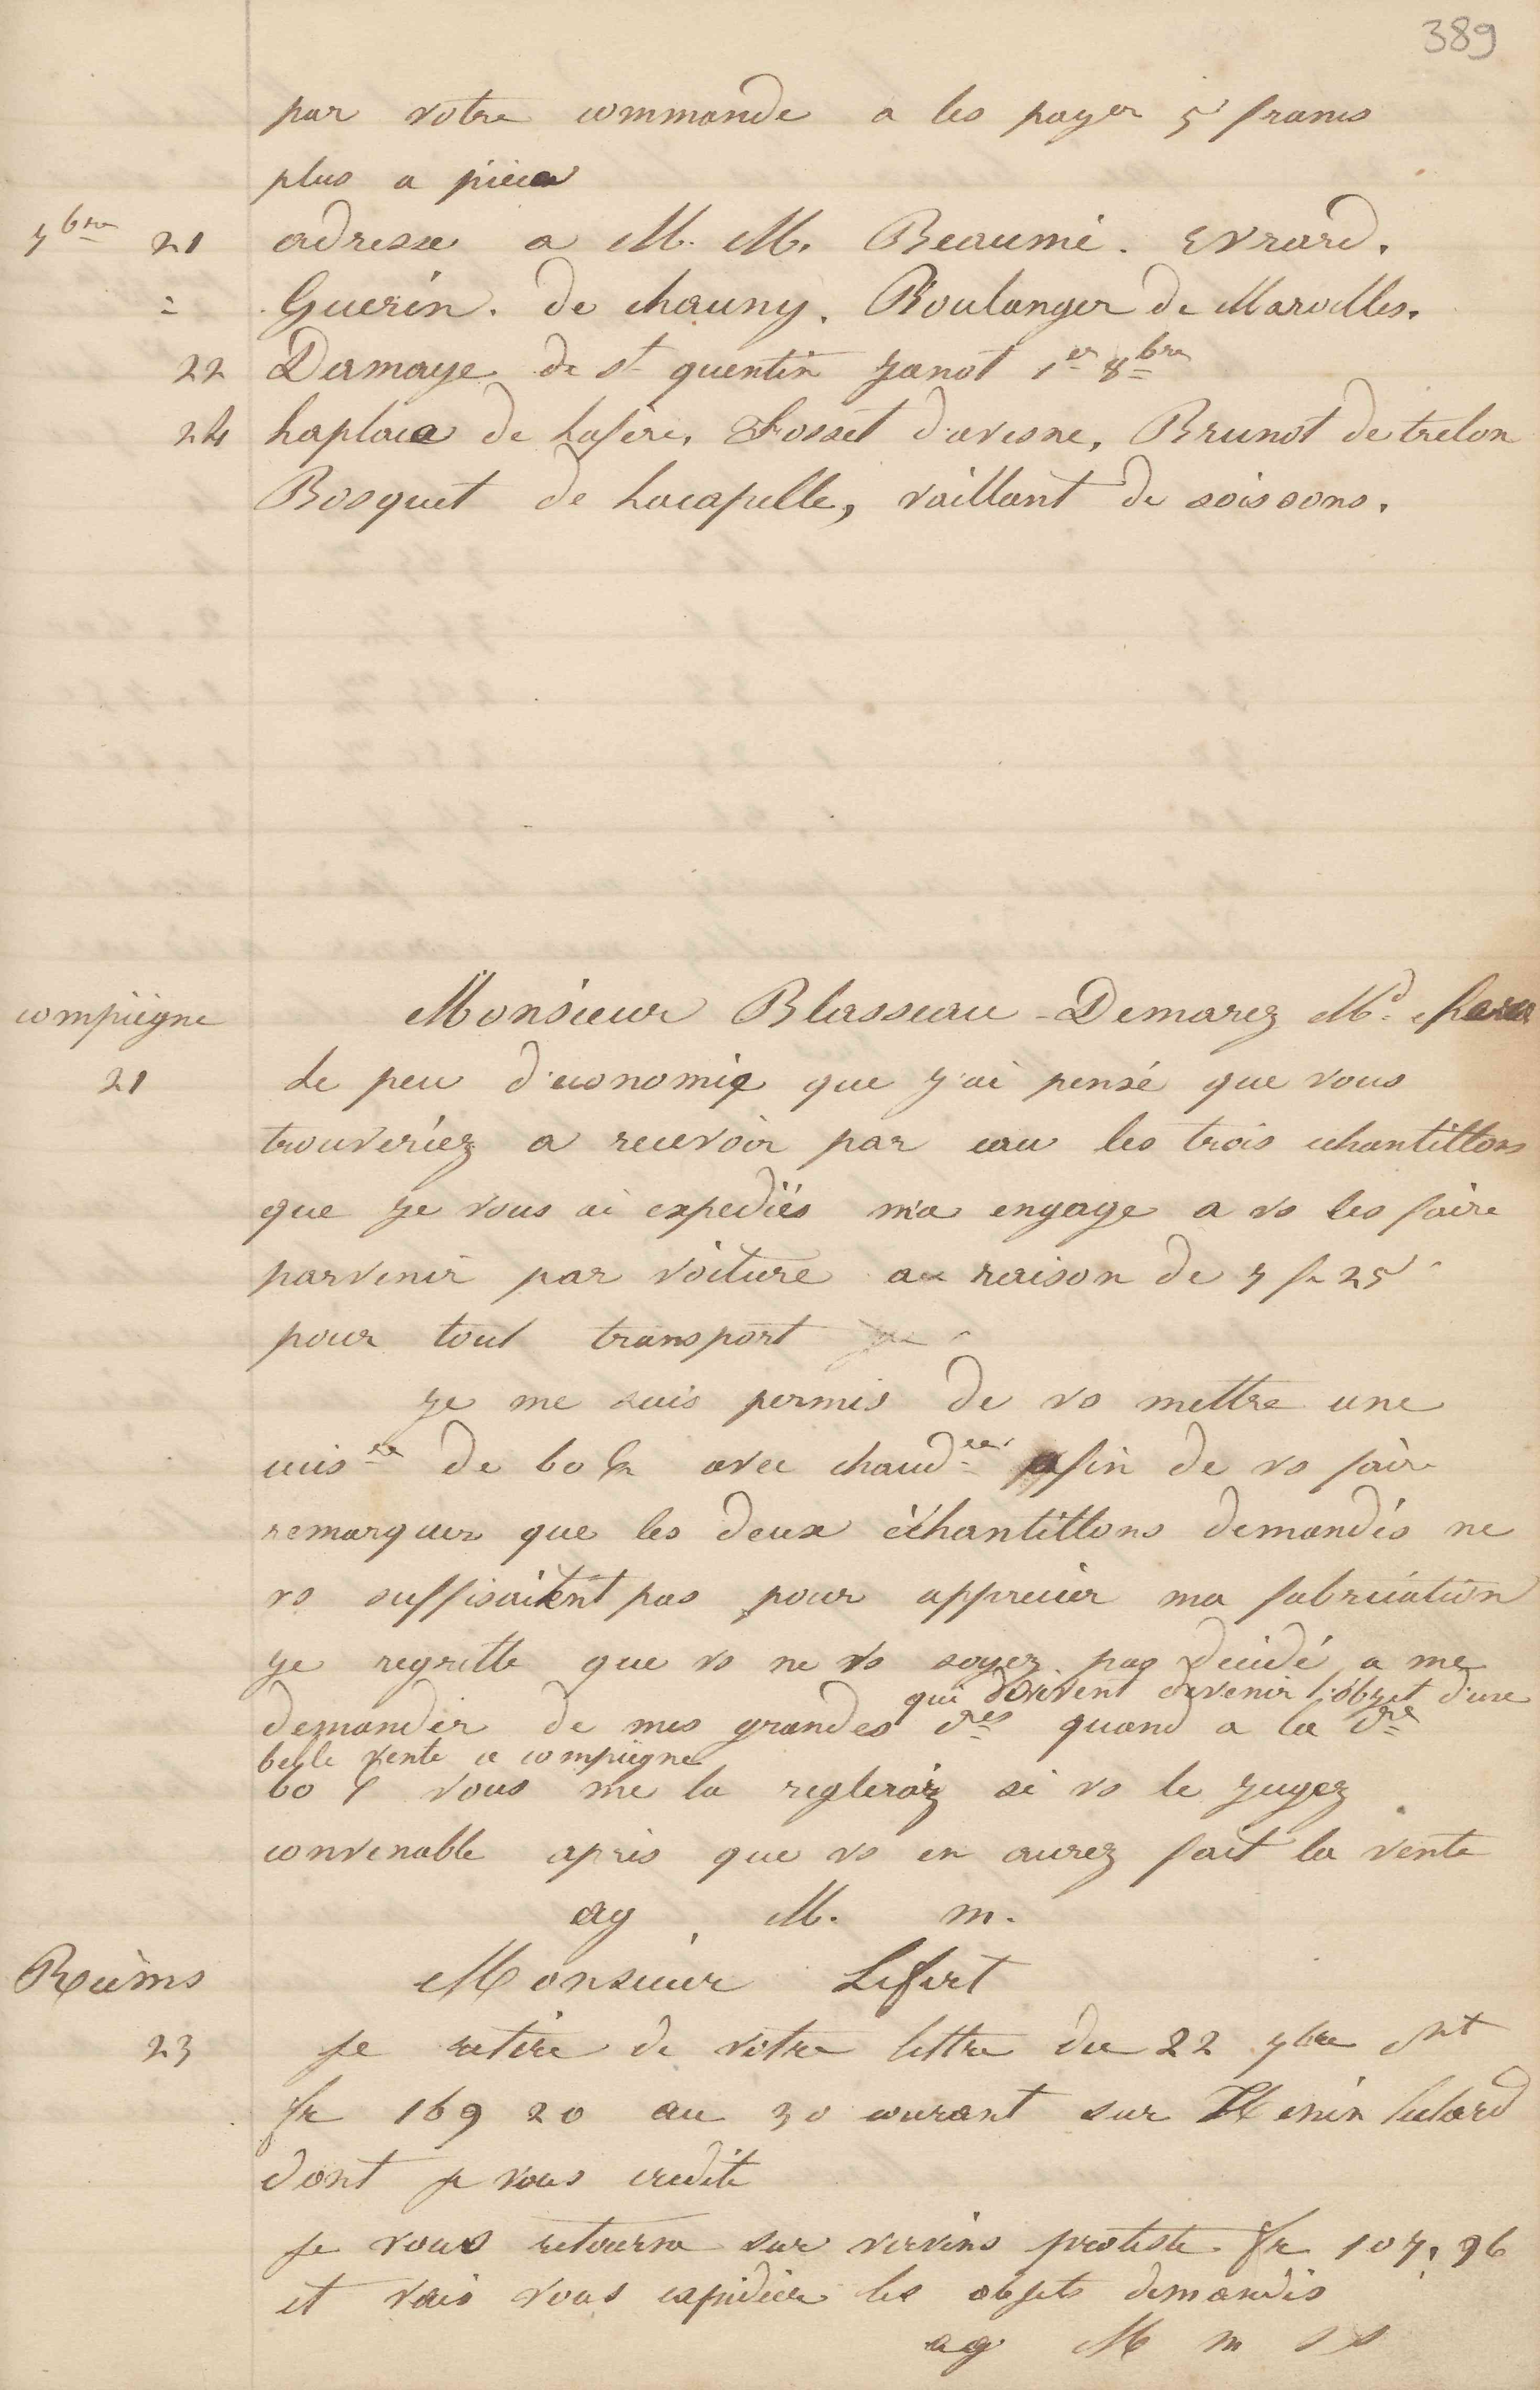 389
par votre commande a les payer 5 francs
plus a pièce
7bre 21 adresse a M. M. Beaumé. Evrard.
= Guerin. de chauny. Boulanger de Marolles.
22 Dermaye de st quentin Janot 1er 8bre
24 Laplace de Lafère, Fosset d'avesne, Brunot de trelon
Bosquet de Lacapelle, vaillant de soissons.
compiègne Monsieur Blasseau-Demarez Md
21 Le peu d'economie que j'ai pensé que vous
trouveriez a recevoir par eau les trois echantillons
que je vous ai expediés m'a engage a vs les faire
parvenir par voiture a raison de 7 f 25
pour tout transport
je me suis permis de vs mettre une
cuisre de 60 avec chaudre afin de vs faire
remarquer que les deux échantillons demandés ne
vs suffisaient pas pour apprecier ma fabrication
je regrette que vs ne vs soyez pas decidé a me
qui doivent devenir l'objet d'une
demander de mes grandes dres quand a la dre
belle vente a compiègne
60 vous me la reglerez si vs le jugez
convenable après que vs en aurez fait la vente
ag M. m.
Reims Monsieur Lefert
23 Je retire de votre lettre du 22 7bre
fr 169 20 au 30 courant sur Henin lietard
dont je vous credite
Je vous retourne sur vervins protesté fr 107,96
et vais vous expedier les objets demandés
ag M m